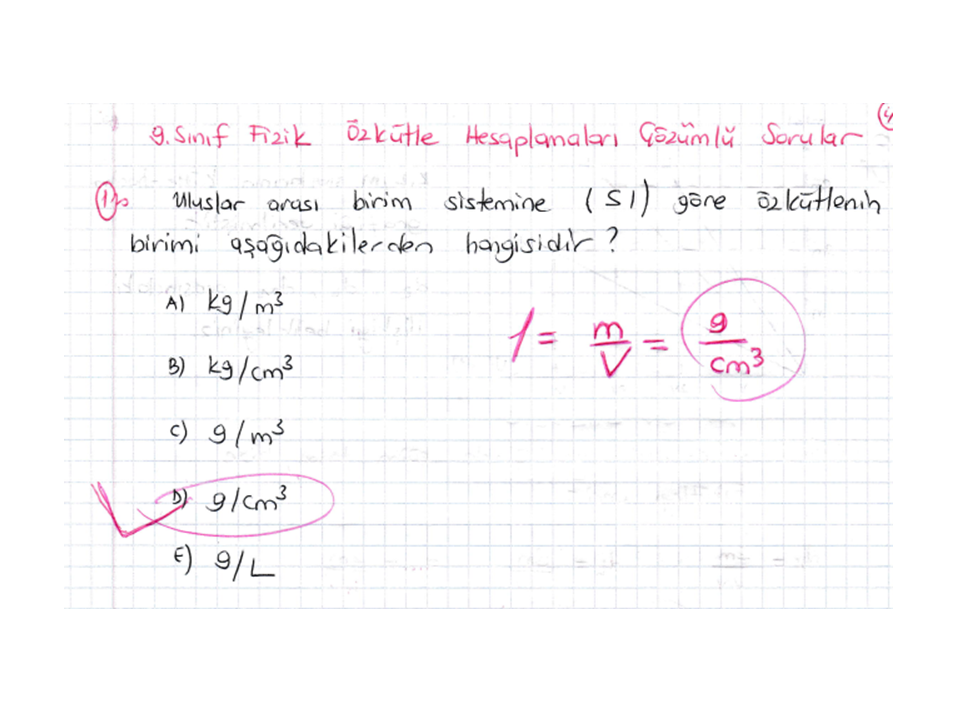 9. Sınıf Fizik Özkütle Hesaplamaları Çözümlü Sorular
1) Uluslar arası birim sistemine (SI) göre özkütlenin
birimi aşağıdakilerden hangisidir?
A) kg/m³
B) kg/cm³
C) g/m³
D) g/cm³
E) g/L
m/V = g/cm³